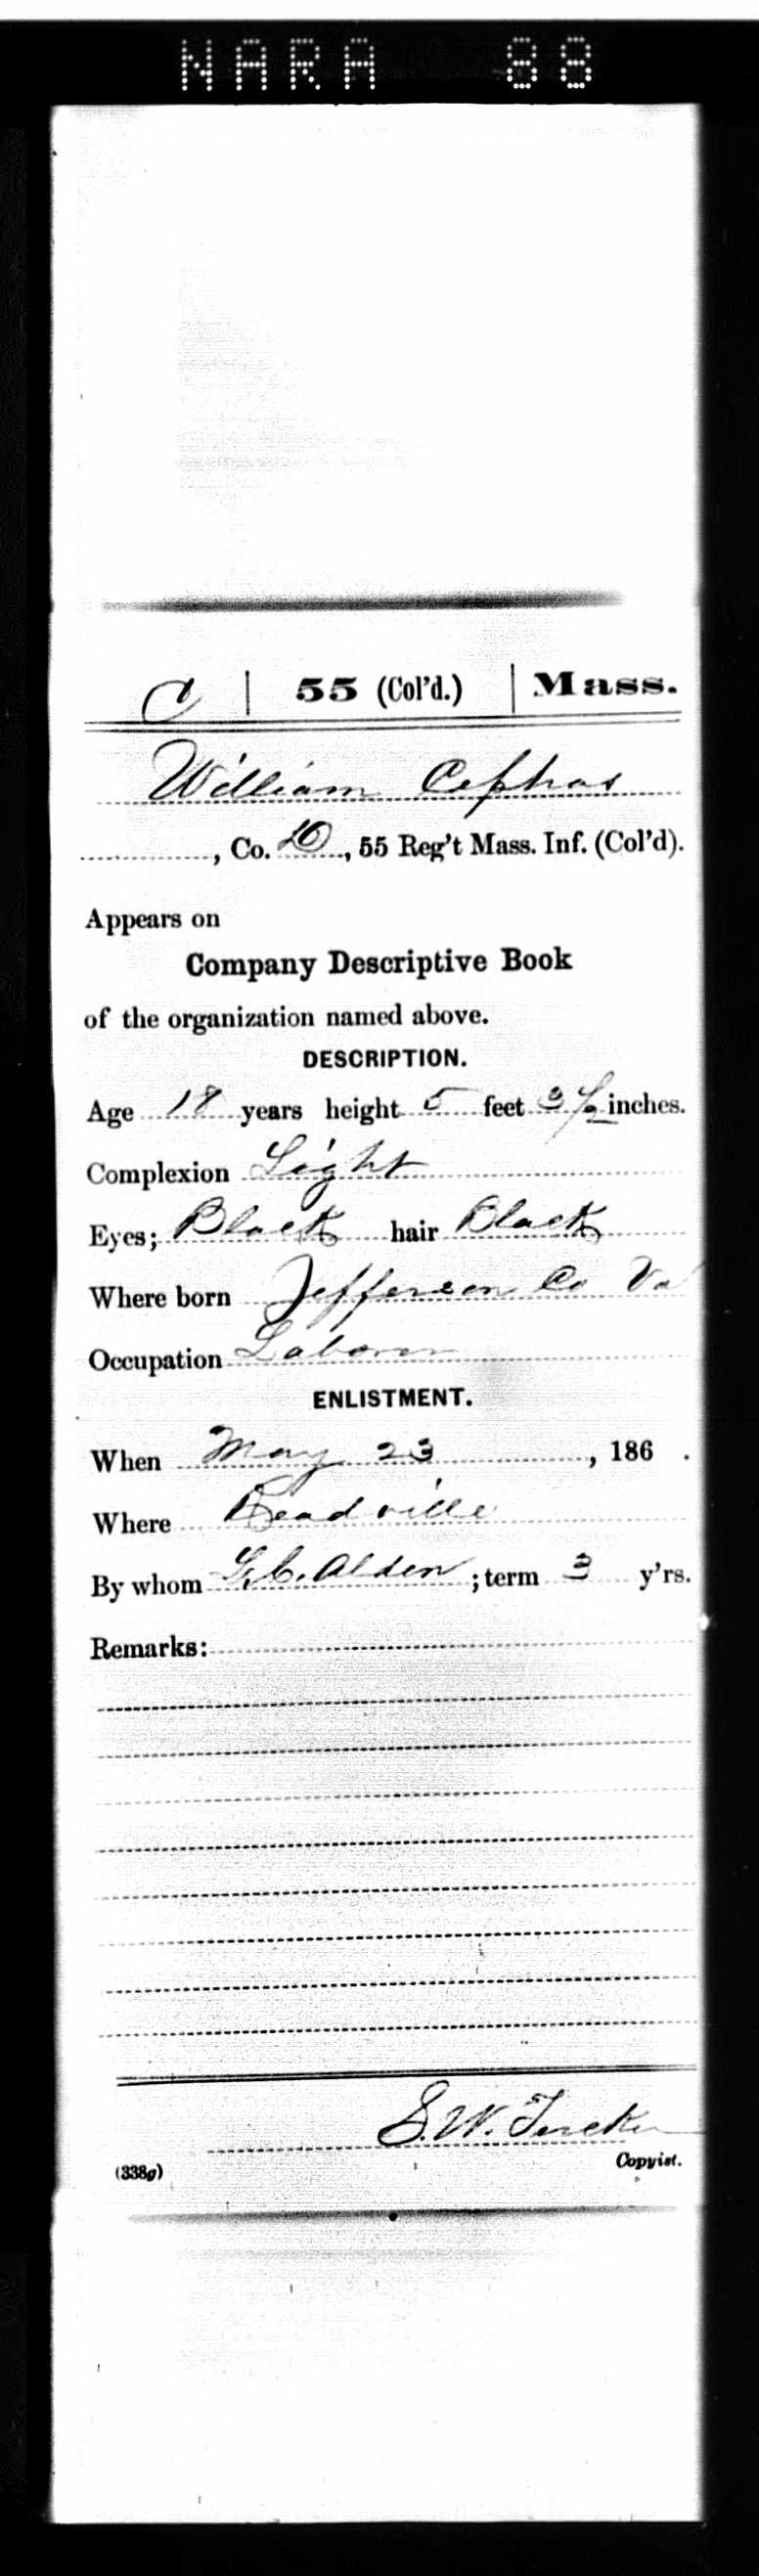 NARA 88
C | 55 (Col'd.) | Mass.
William Cephas
, Co. D, 55 Reg't Mass. Inf. (Col'd).
Appears on
Company Descriptive Book
of the organization named above.
DESCRIPTION.
Age 18 years height 5 feet 3 1/2 inches.
Complexion Light
Eyes; Black hair Black
Where born Jefferson Co Va
Occupation Laborer
ENLISTMENT.
When May 23, 186 .
Where Readville
By whom G.C. Alden; term 3 y'rs.
Remarks:
S.W. Tucker
(338g) Copyist.